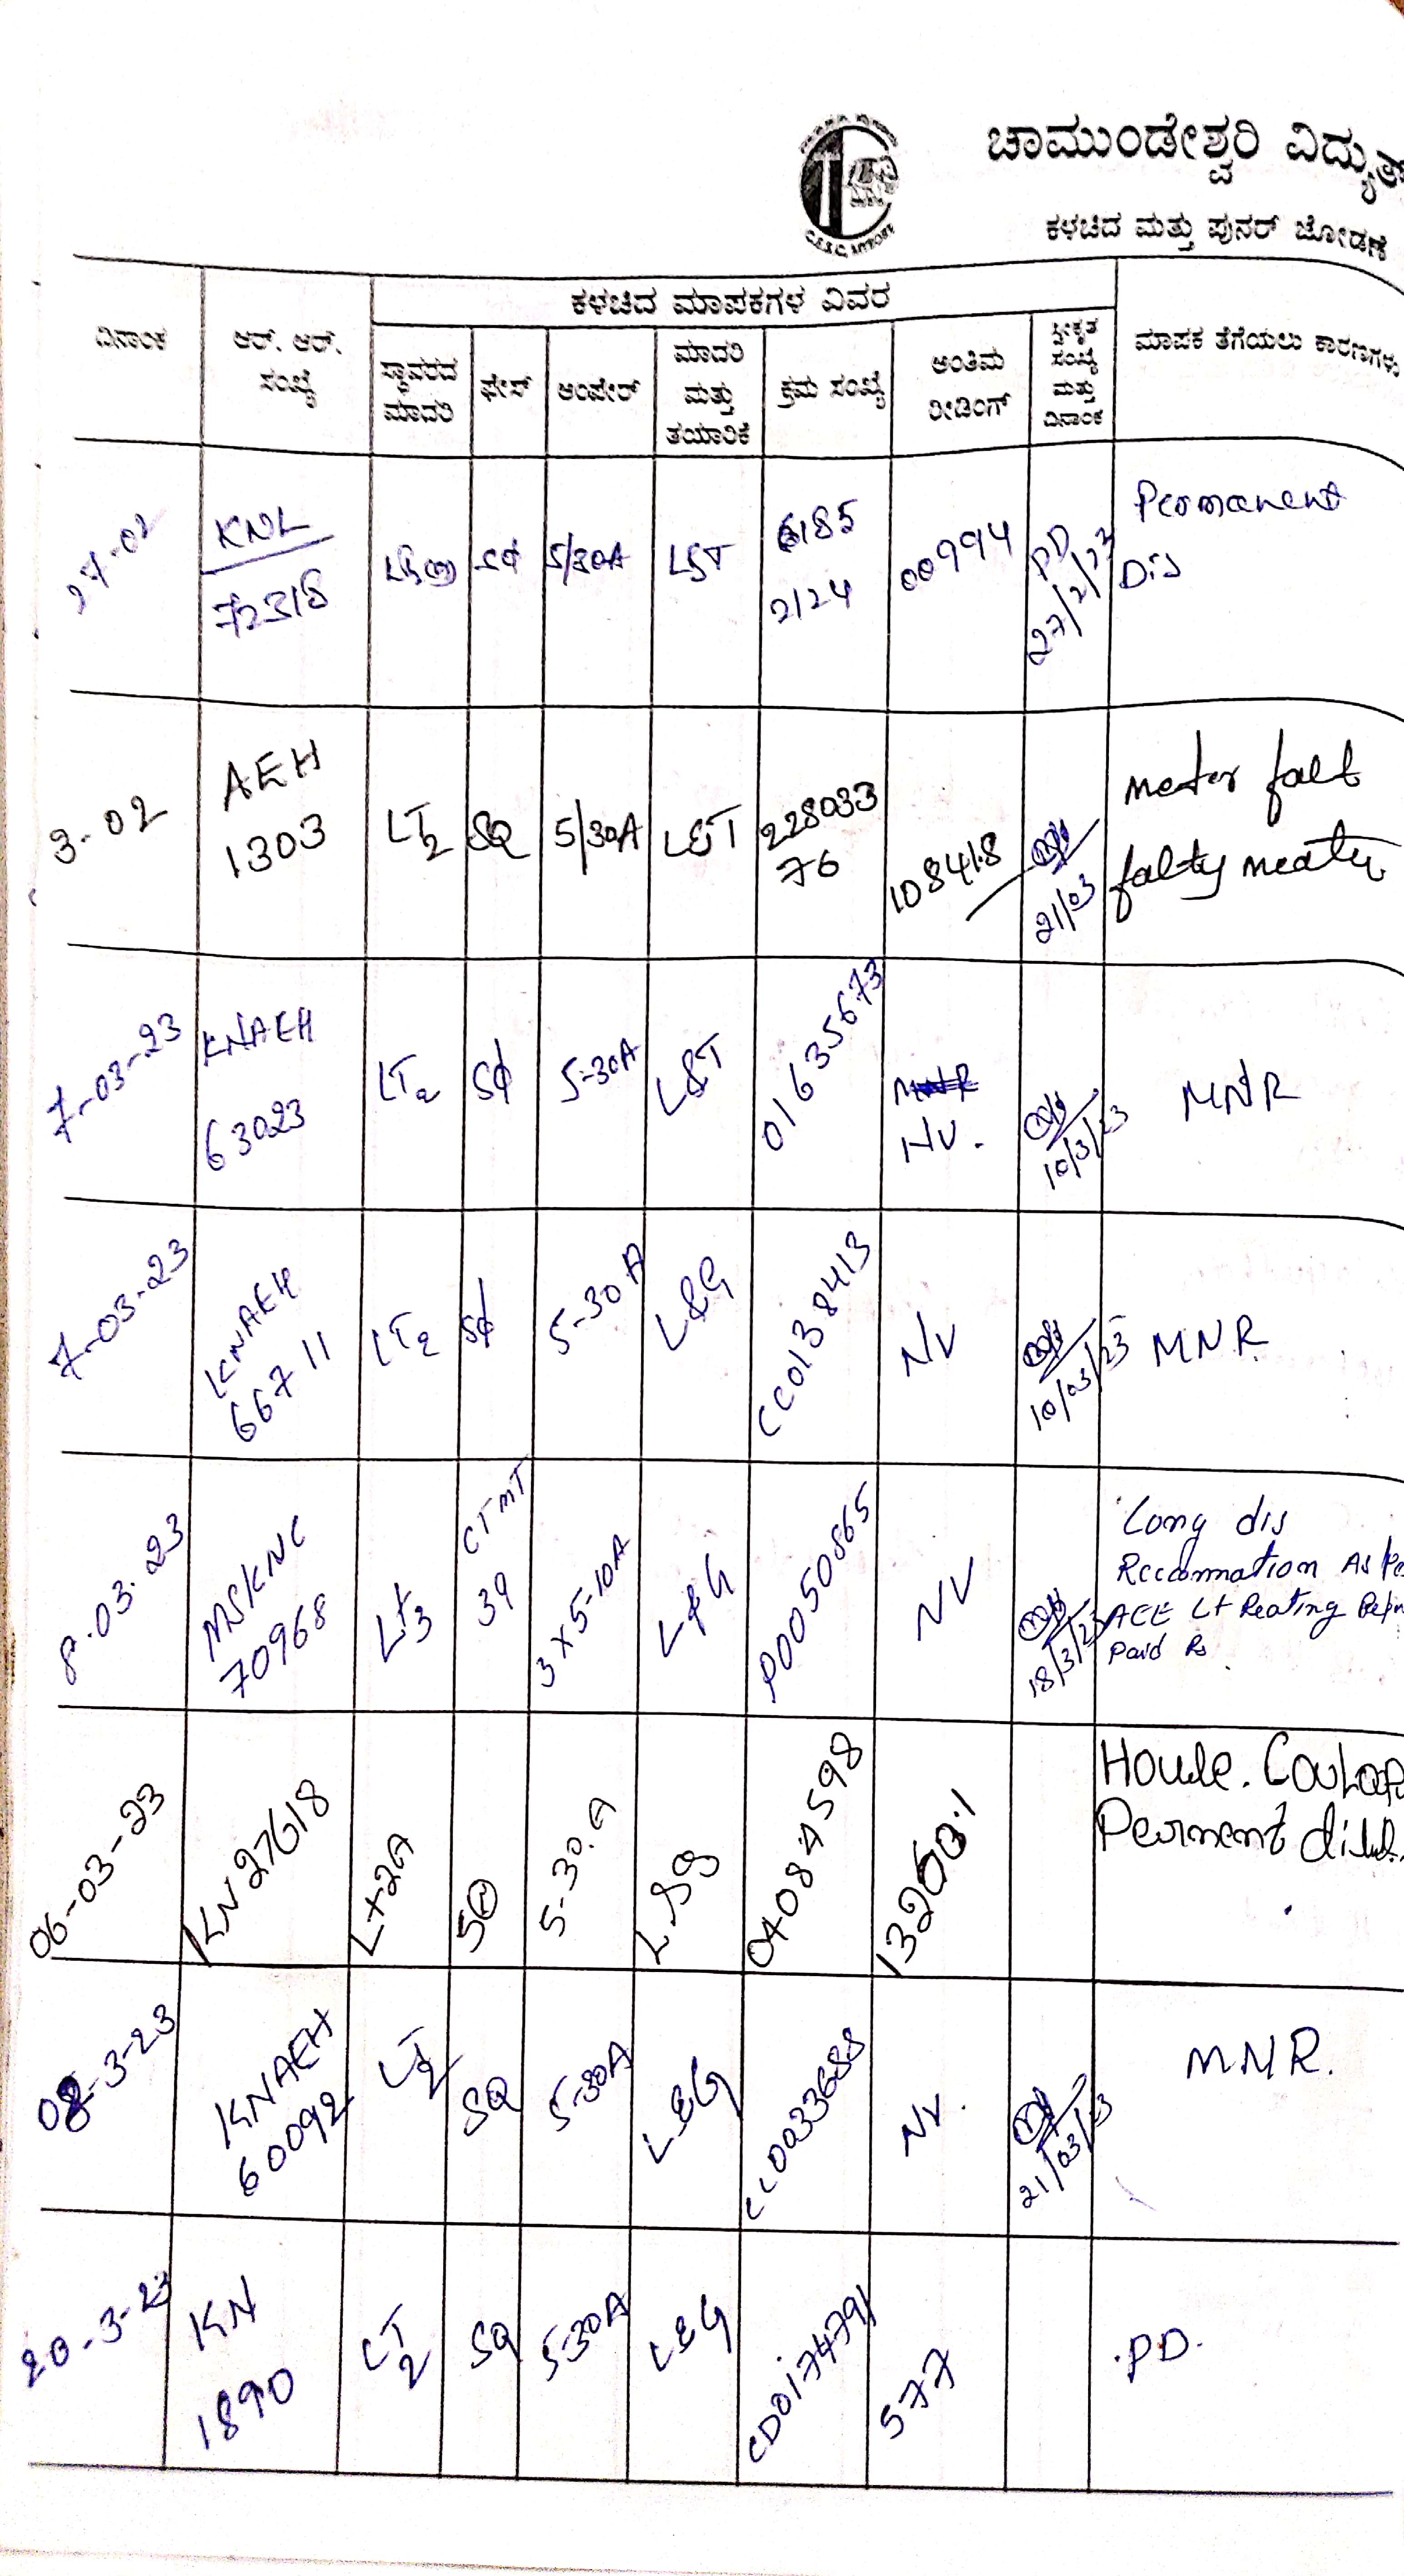 ಚಾಮುಂಡೇಶ್ವರಿ ವಿದ್ಯುತ್
ಕಳಚಿದ ಮತ್ತು ಪುನರ್ ಜೋಡಣೆ
ದಿನಾಂಕ
ಆರ್. ಆರ್.
ಸಂಖ್ಯೆ
ಕಳಚಿದ ಮಾಪಕಗಳ ವಿವರ
ಸ್ಥಾವರದ
ಮಾದರಿ
ಫೇಸ್
ಆಂಪೇರ್
ಮಾದರಿ
ಮತ್ತು
ತಯಾರಿಕೆ
ಕ್ರಮ ಸಂಖ್ಯೆ
ಅಂತಿಮ
ರೀಡಿಂಗ್
ಸ್ವೀಕೃತ
ಸಂಖ್ಯೆ
ಮತ್ತು
ದಿನಾಂಕ
ಮಾಪಕ ತೆಗೆಯಲು ಕಾರಣಗಳು
27-02
KNL
72318
5/30A
L&T
6185
2124
00994
PD
27/2/23
Permanent
Dis
3-02
AEH
1303
LT2
SQ
5/30A
L&T
228033
76
108418
21/03
meter falt
falty meater
7-03-23
KNAEH
63023
LT2
Sϕ
5-30A
L&T
01635673
NV.
10/3/23
MNR
7-03-23
KNAEH
66711
LT2
Sϕ
5-30A
L&G
CC0138413
NV
10/03/23
MNR
8.03.23
MSKNC
70968
Lt3
CTMT
39
3x5-10A
L&G
P0050565
NV
18/3/23
Long dis
Reconnation As Pe
AEE Lt Reating
Paid Rs
06-03-23
KN27618
Lt2A
5-30.A
L&g
04084598
13260.1
House.
Pearnent
08-3-23
KNAEH
60092
LT2
SQ
5-30A
L&G
CC0033688
NV.
21/03/23
MNR.
20-3-23
KN
1890
LT2
SQ
5-30A
L&G
CD0174791
577
.PD.